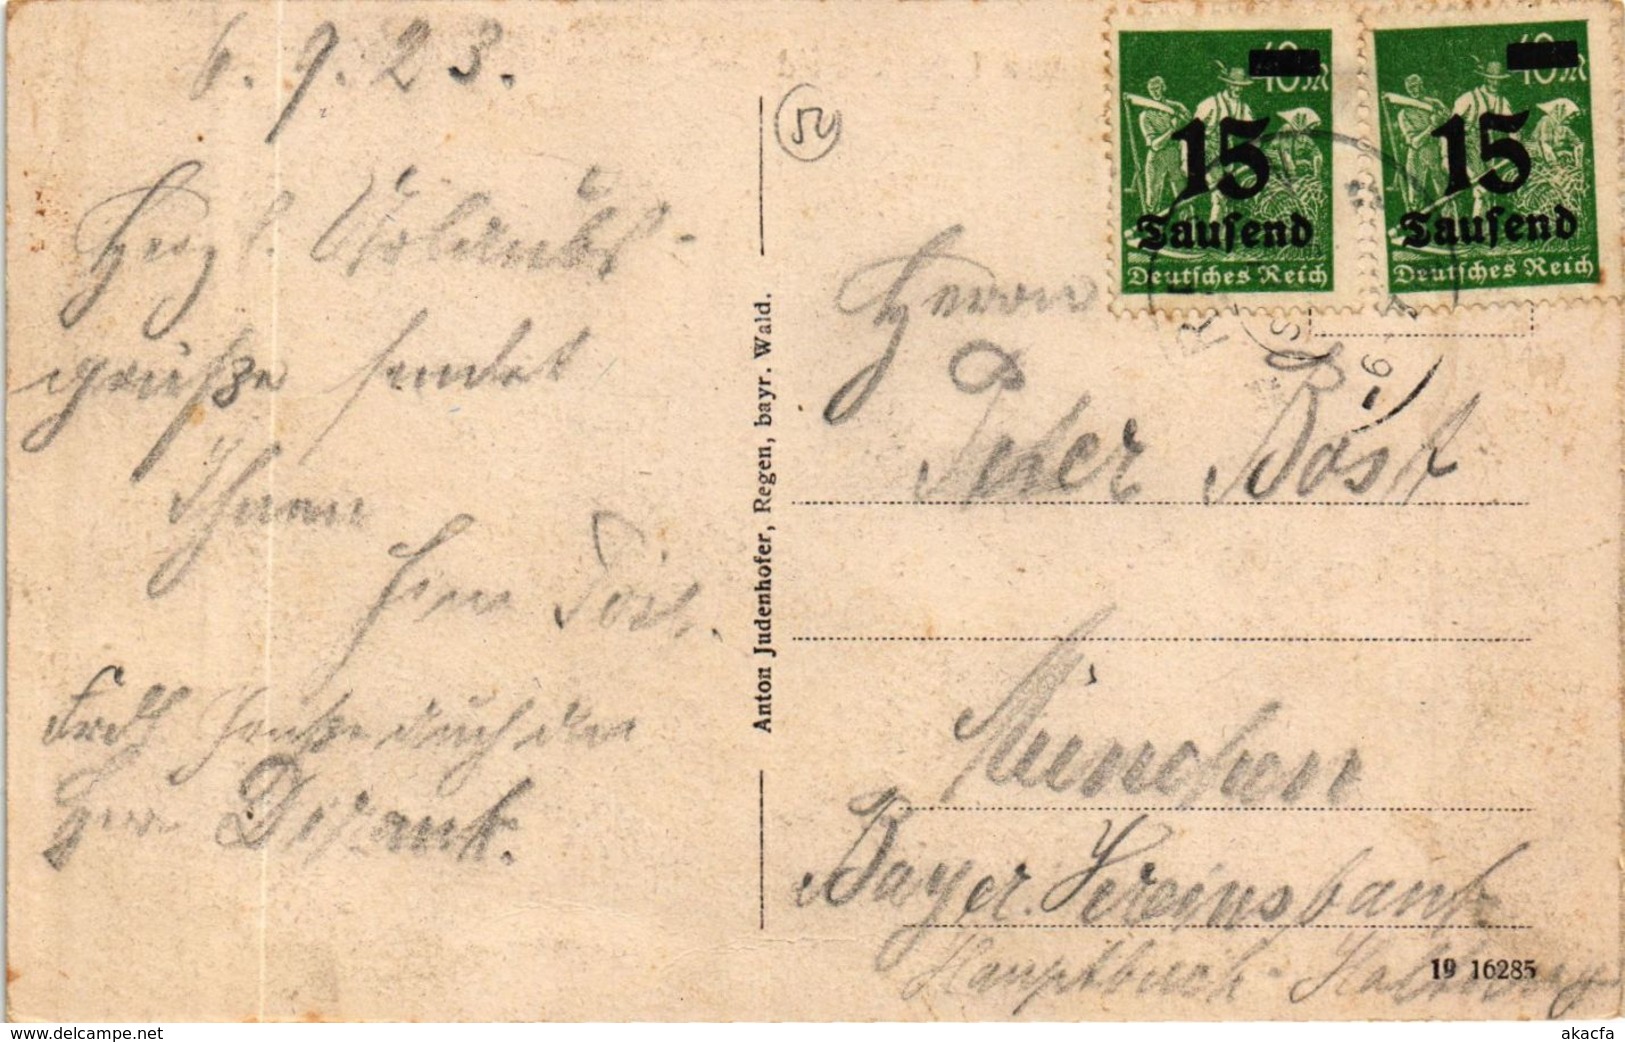 6.9.23.
Herzl. Urlaubs-
grüße sendet
Ihnen
Herr
durch den
Herr
Anton Judenhofer, Regen, bayr. Wald.
40 M
15
Tausend
Deutsches Reich
40 M
15
Tausend
Deutsches Reich
Herrn
Peter Bost
München
Bayer. Vereinsbank
Hauptbuch-
19 16285
www.delcampe.net
akacfa